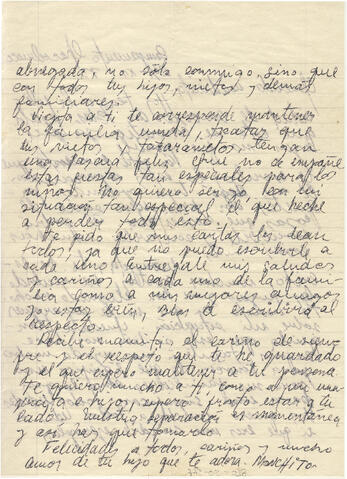 abnegada, no solo conmigo, sino que
con todos tus hijos, nietos y demás
familiares.
Vieja a ti te corresponde mantener
la familia unida, tratar que
tus nietos y tataranietos tengan
una pascua feliz. Que no se empañe
estas fiestas tan especiales para los
niños. No quiero ser yo con mi
situación tan especial el que heche
a perder todo esto.
Te pido que mis cartas las lean
todos, ya que no puedo escribirle a
cada uno entregale mis saludos
y cariños a cada uno de la fami-
lia como a mis mejores amigos
yo estoy bien, Dios te escribira al
respecto.
Recibe mamita el cariño de siem-
pre y el respeto que te he guardado
y el que espero mantener a tu persona.
Te quiero mucho a ti, como a mi
e hijos espero pronto estar a tu
lado. Nuestra separación es momentanea
y asi hay que tomarlo.
Felicidades a todos, cariños y mucho
amor de tu hijo que te adora. MONCHITO